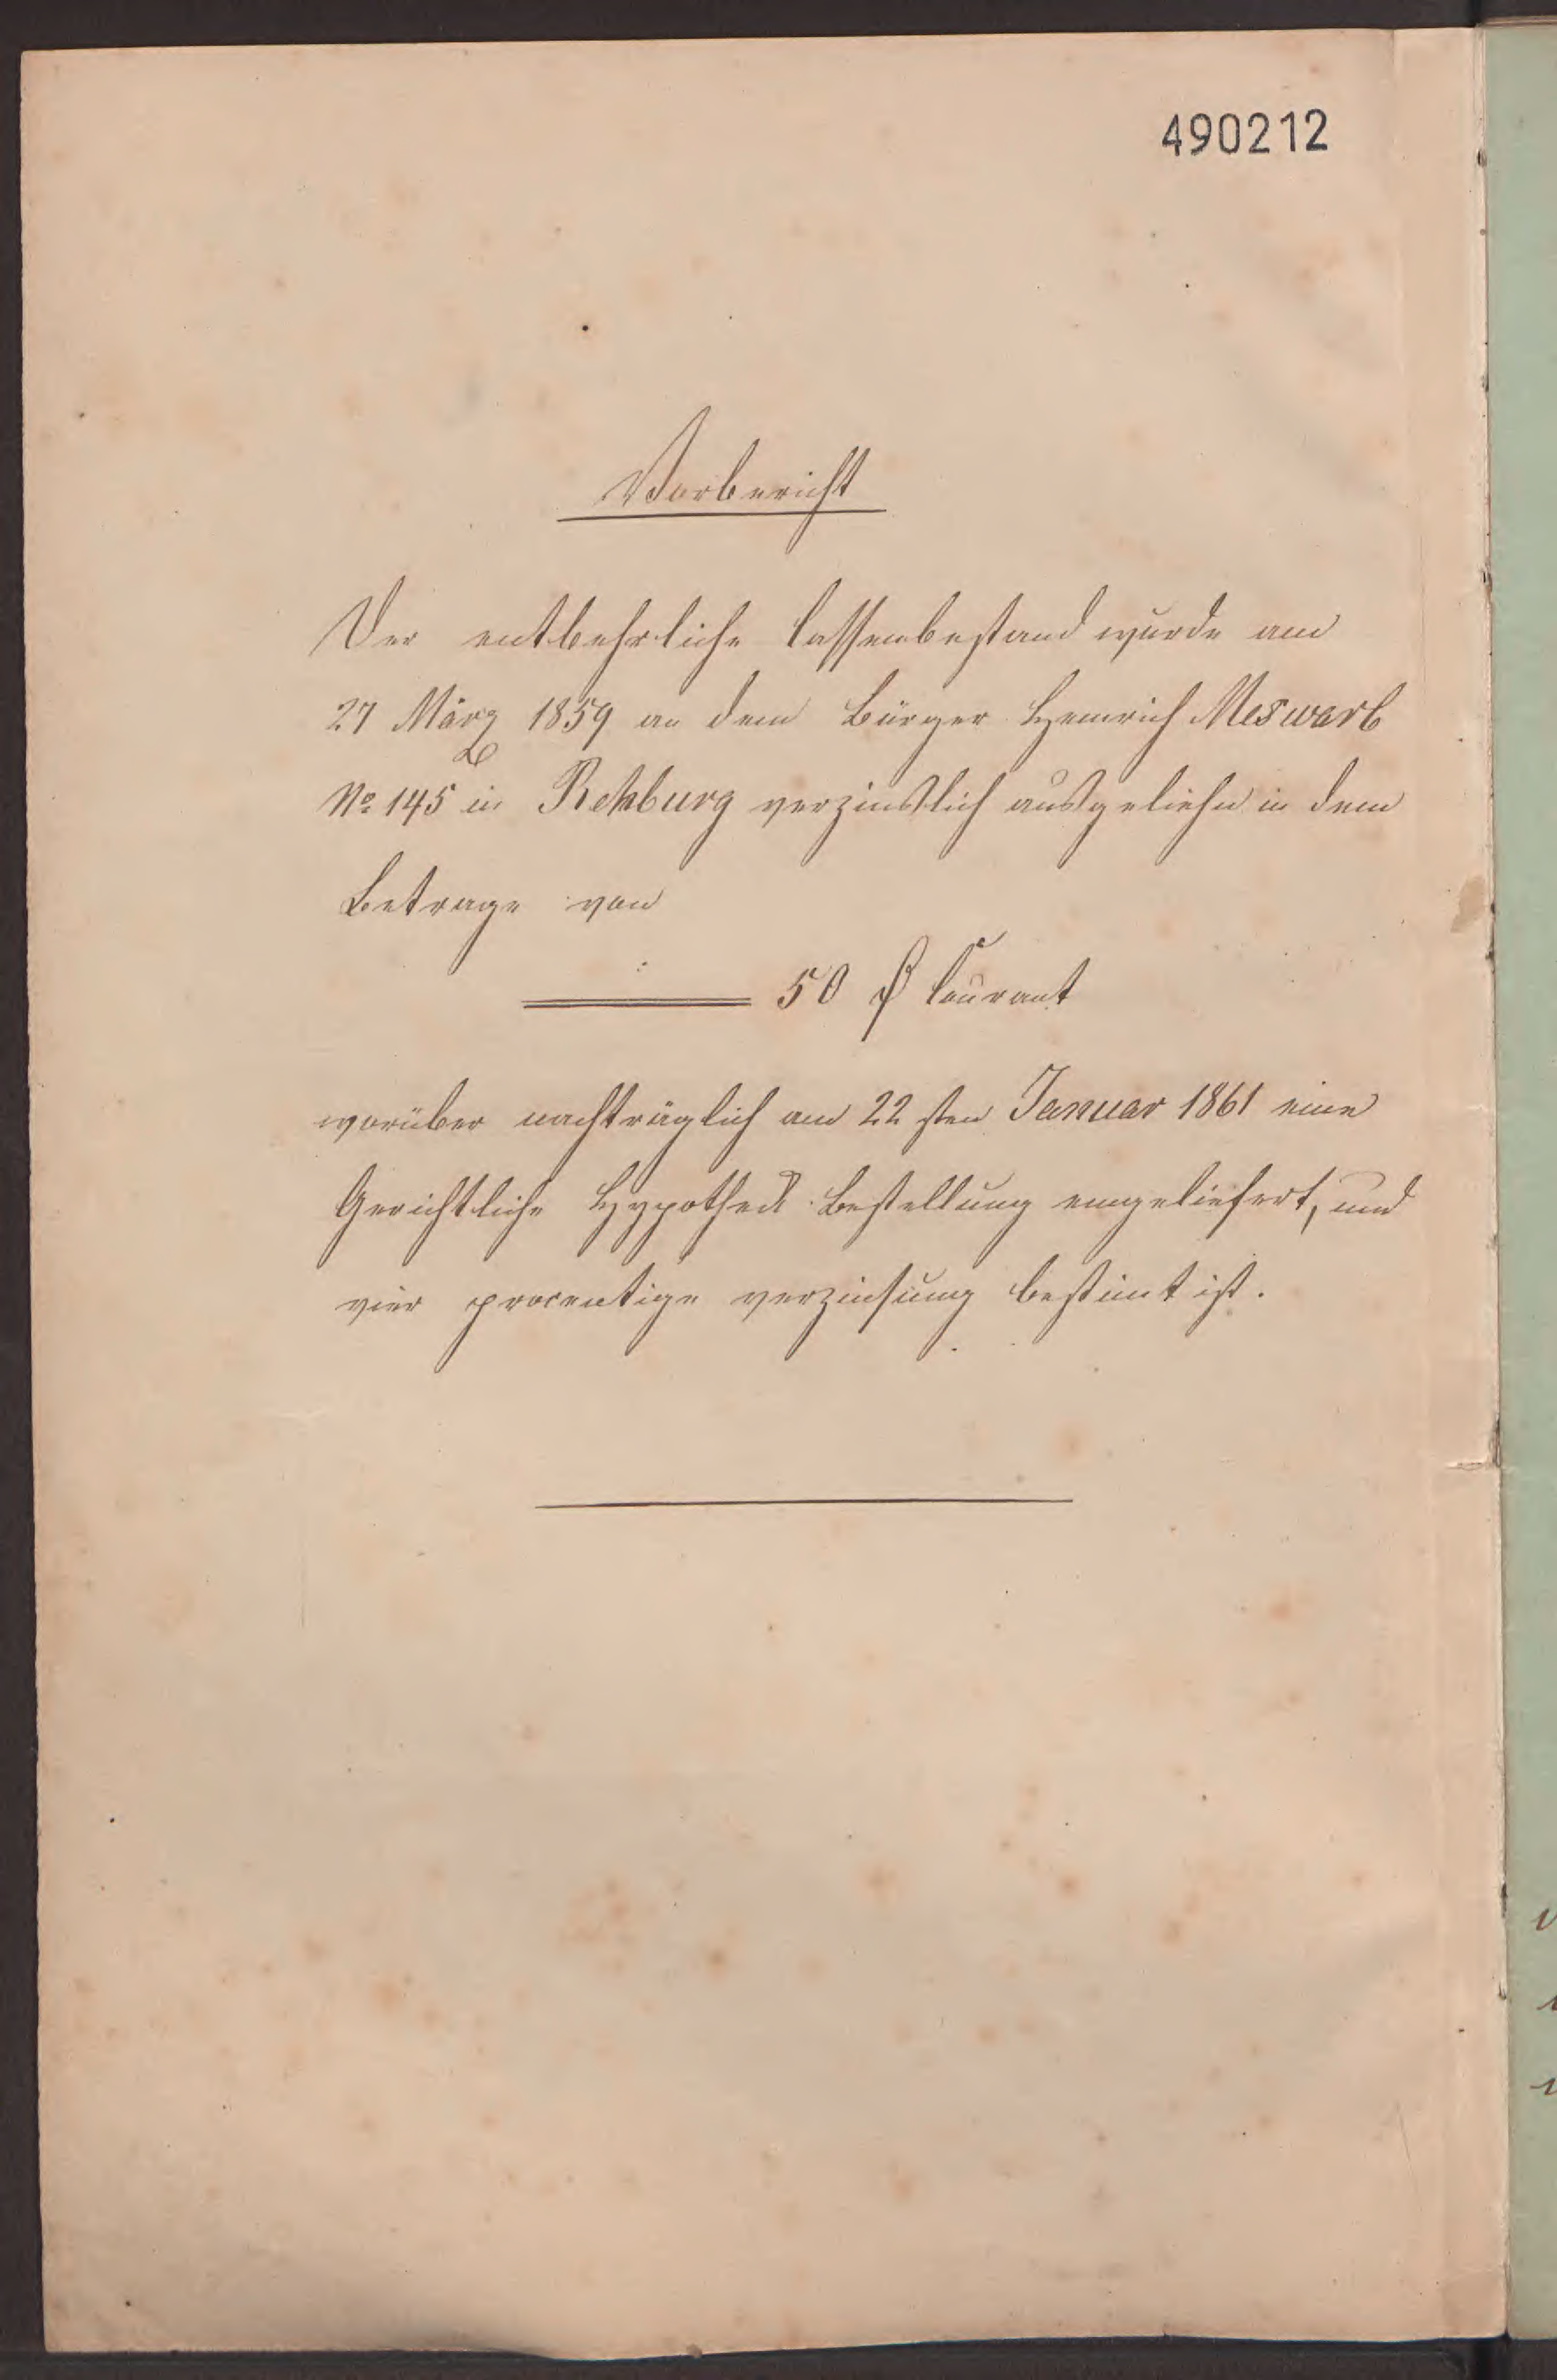 490212
Vorbericht
Der entbehrliche Cassenbestand wurde am
27 März 1859 an dem Bürger Heinrich Meswarb
No 145 in Rehburg verzinslich ausgeliehn in dem
Betrage von
50 ₰ Courant
worüber nachträglich am 22 sten Januar 1861 eine
Gerichtliche Hypothek Bestellung eingeliefert, und
vier procentige verzinsung bestimt ist.